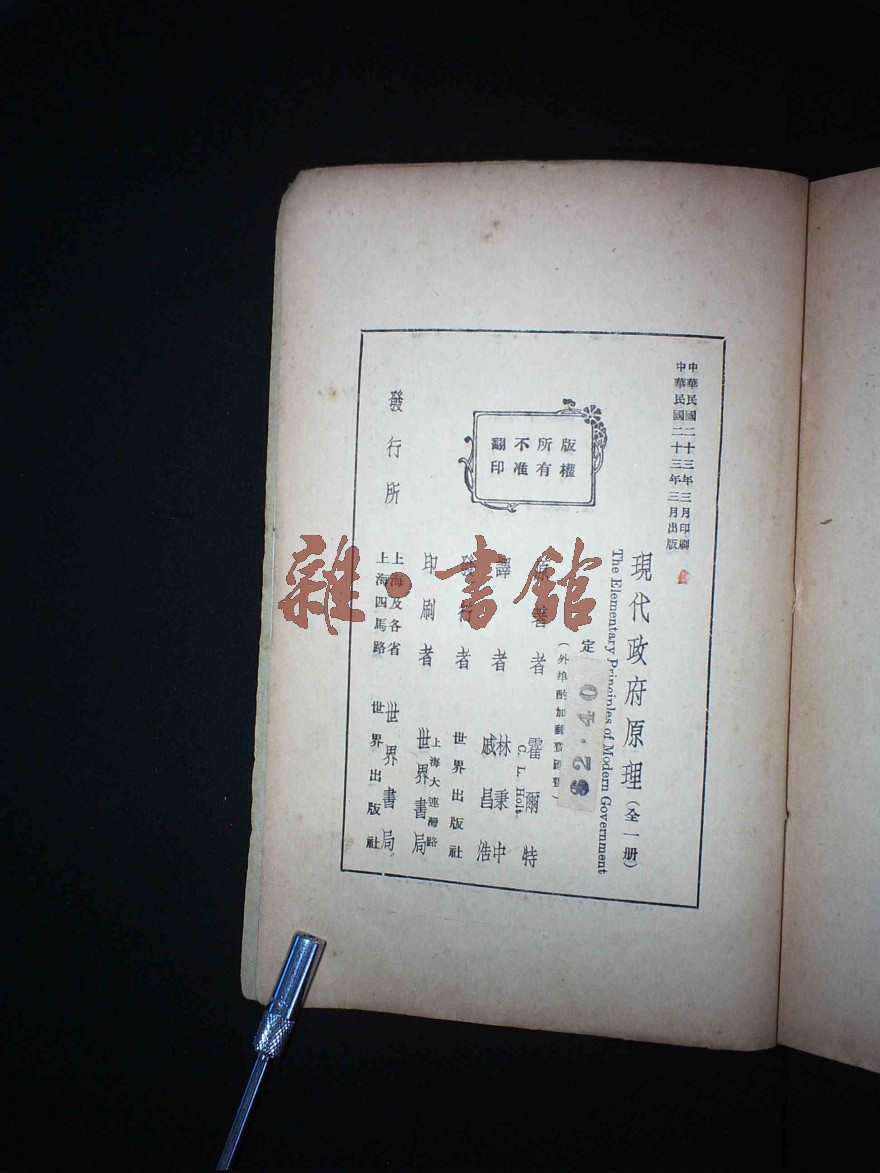 中華民國二十三年三月印刷
中華民國二十三年三月出版
現代政府原理(全一册)
The Elementary Principles of Modern Government
定
$2.40
(外埠酌加郵費匯費)
版權
所有
不准
翻印
原著者 霍爾特
C. L. Holt
譯者 林秉中
戚昌浩
發行者 世界出版社
印刷者 上海大連灣路
世界書局
發行所 上海及各省 世界書局
上海四馬路 世界出版社
雜·書館